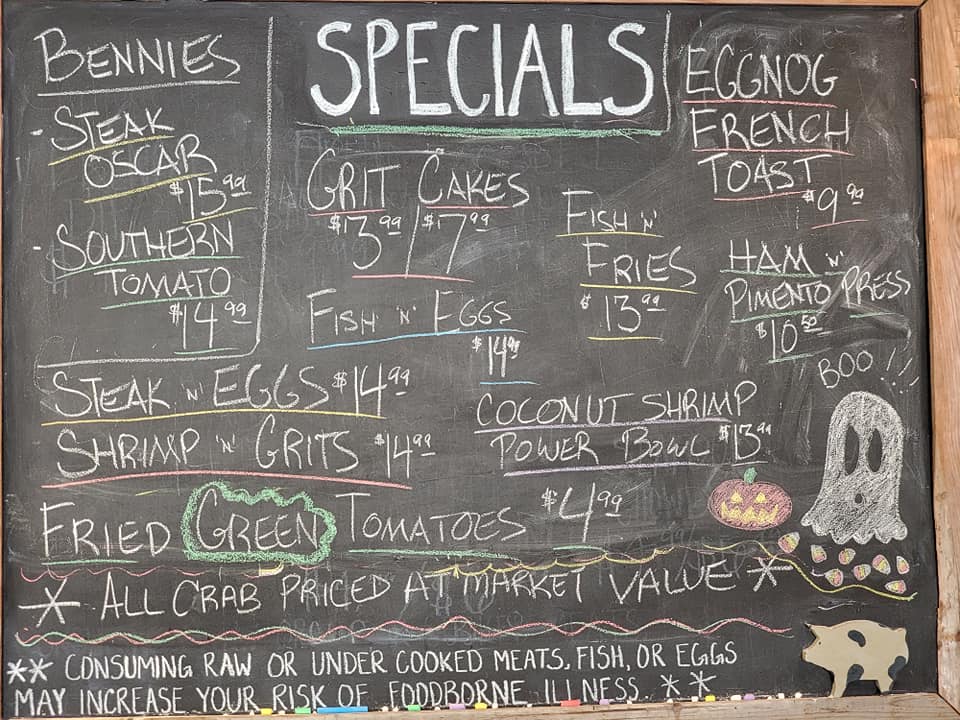 SPECIALS
BENNIES
- STEAK
OSCAR
$15.99
- SOUTHERN
TOMATO
$14.99
GRIT CAKES
$3.99/$7.99
FISH 'N' EGGS
$14.99
FISH N'
FRIES
$13.99
EGGNOG
FRENCH
TOAST
$9.99
HAM N'
PIMENTO PRESS
$10.50
STEAK N' EGGS $14.99
SHRIMP 'N' GRITS $14.99
COCONUT SHRIMP
POWER BOWL $13.99
BOO!!!
FRIED GREEN TOMATOES $4.99
* ALL CRAB PRICED AT MARKET VALUE *
** CONSUMING RAW OR UNDER COOKED MEATS, FISH, OR EGGS
MAY INCREASE YOUR RISK OF FOODBORNE ILLNESS. **